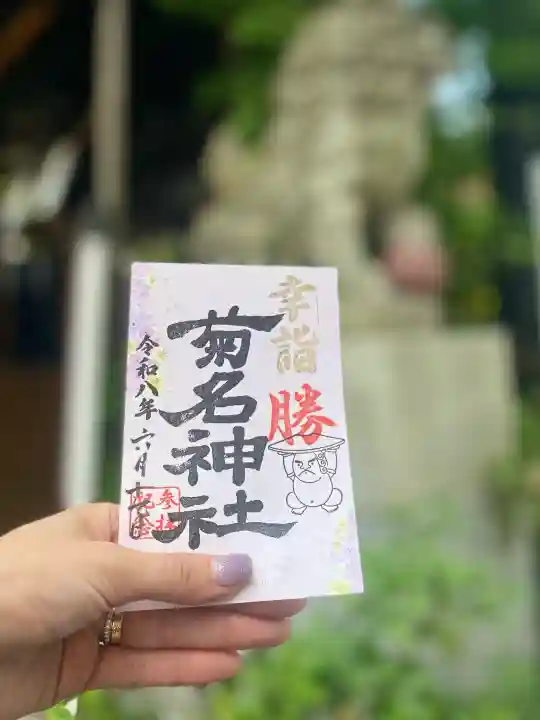 幸詣
勝
菊名神社
令和八年六月
参拝
記念